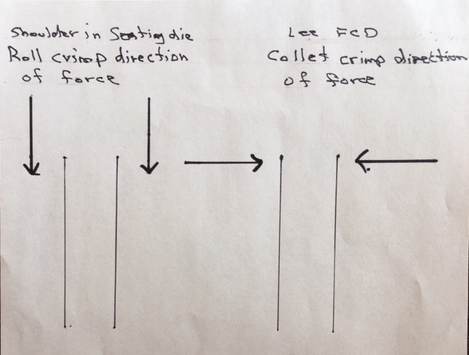 Shoulder in Seating die
Roll crimp direction
of force
Lee FCD
Collet crimp direction
of force